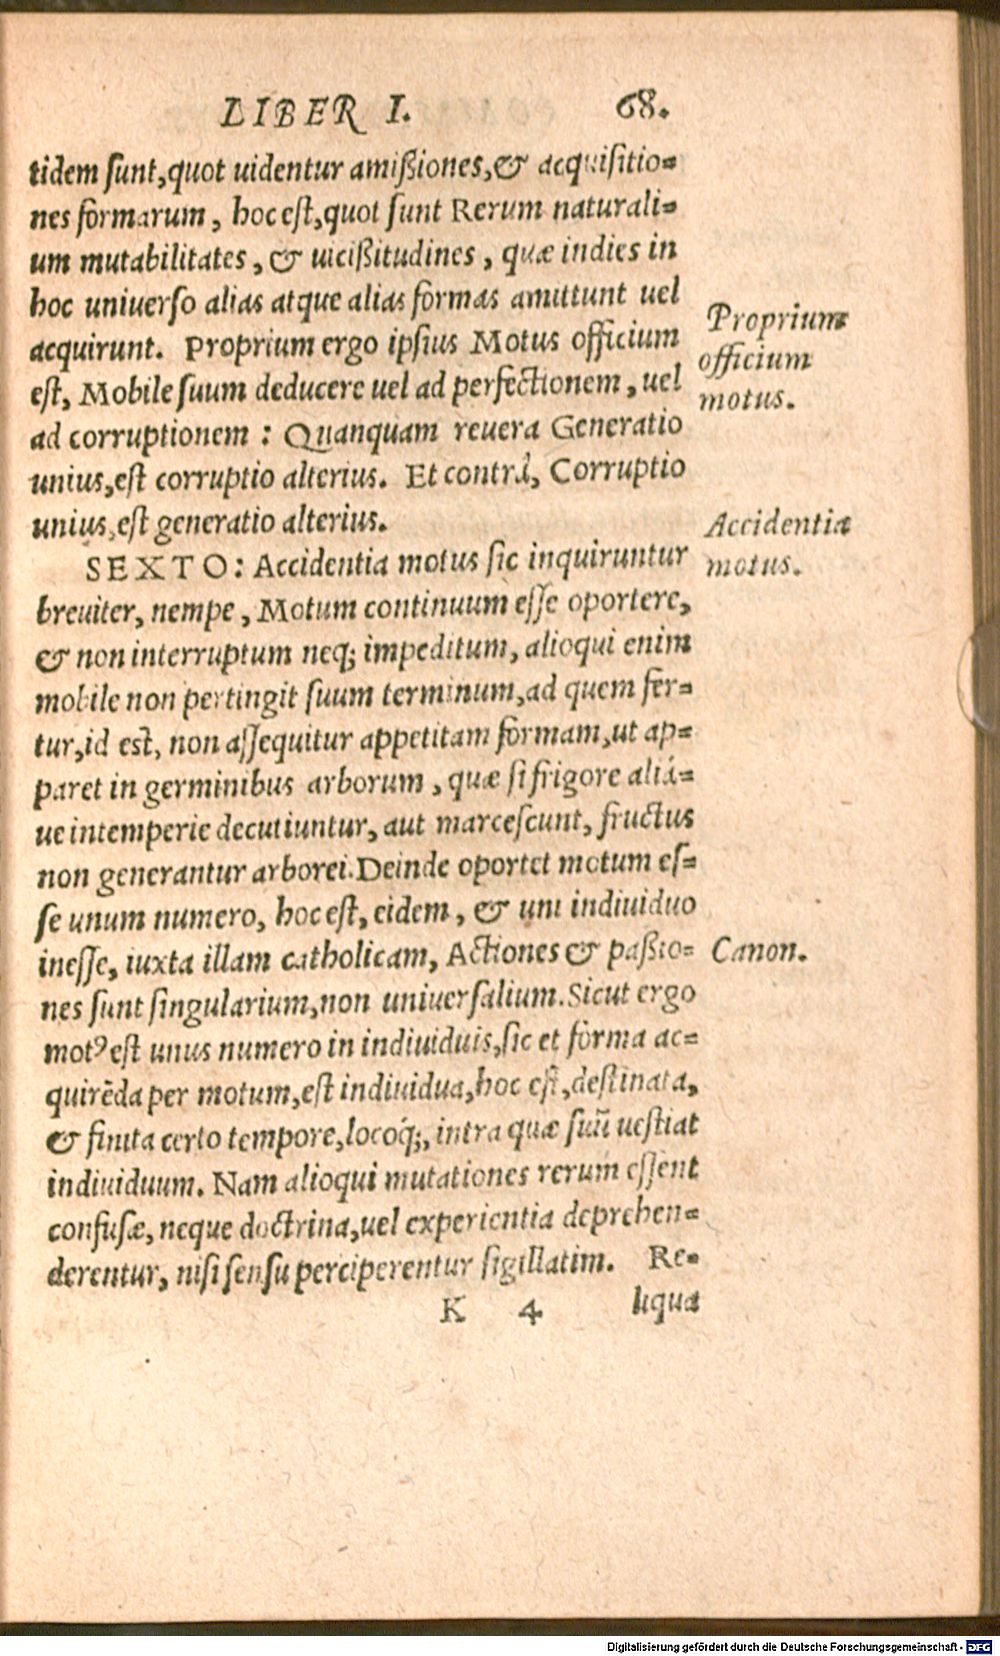 LIBER I. 68.
tidem sunt,quot uidentur amißiones,& acquisitio=
nes formarum, hoc est,quot sunt Rerum naturali=
um mutabilitates, & uicißitudines, quæ indies in
hoc uniuerso alias atque alias formas amittunt uel
acquirunt. Proprium ergo ipsius Motus officium
est, Mobile suum deducere uel ad perfectionem, uel
ad corruptionem: Quanquam reuera Generatio
unius,est corruptio alterius. Et contrà, Corruptio
unius,est generatio alterius.
Proprium
officium
motus.
SEXTO: Accidentia motus sic inquiruntur
breuiter, nempe, Motum continuum esse oportere,
& non interruptum neq; impeditum, alioqui enim
mobile non pertingit suum terminum,ad quem fer=
tur,id est, non assequitur appetitam formam,ut ap=
paret in germinibus arborum, quæ si frigore aliá=
ue intemperie decutiuntur, aut marcescunt, fructus
non generantur arborei.Deinde oportet motum es=
se unum numero, hoc est, eidem, & uni indiuiduo
inesse, iuxta illam catholicam, Actiones & paßio=
nes sunt singularium,non uniuersalium.Sicut ergo
motꝰ est unus numero in indiuiduis,sic et forma ac=
quirēda per motum,est indiuidua,hoc est,destinata,
& finita certo tempore,locoq́;, intra quæ suū uestiat
indiuiduum. Nam alioqui mutationes rerum essent
confusæ, neque doctrina,uel experientia deprehen=
derentur, nisi sensu perciperentur sigillatim. Re=
Accidentia
motus.
Canon.
K 4 liqua
Digitalisierung gefördert durch die Deutsche Forschungsgemeinschaft - DFG